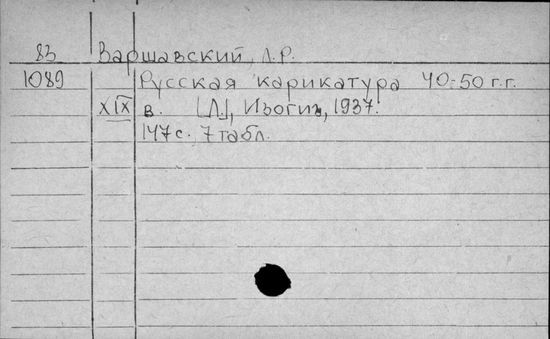 83 Варшавский, Л.Р.
1089 Русская карикатура 40-50 г.г.
XIX в. [Л.], Изогиз, 1937.
147 с. 7 табл.